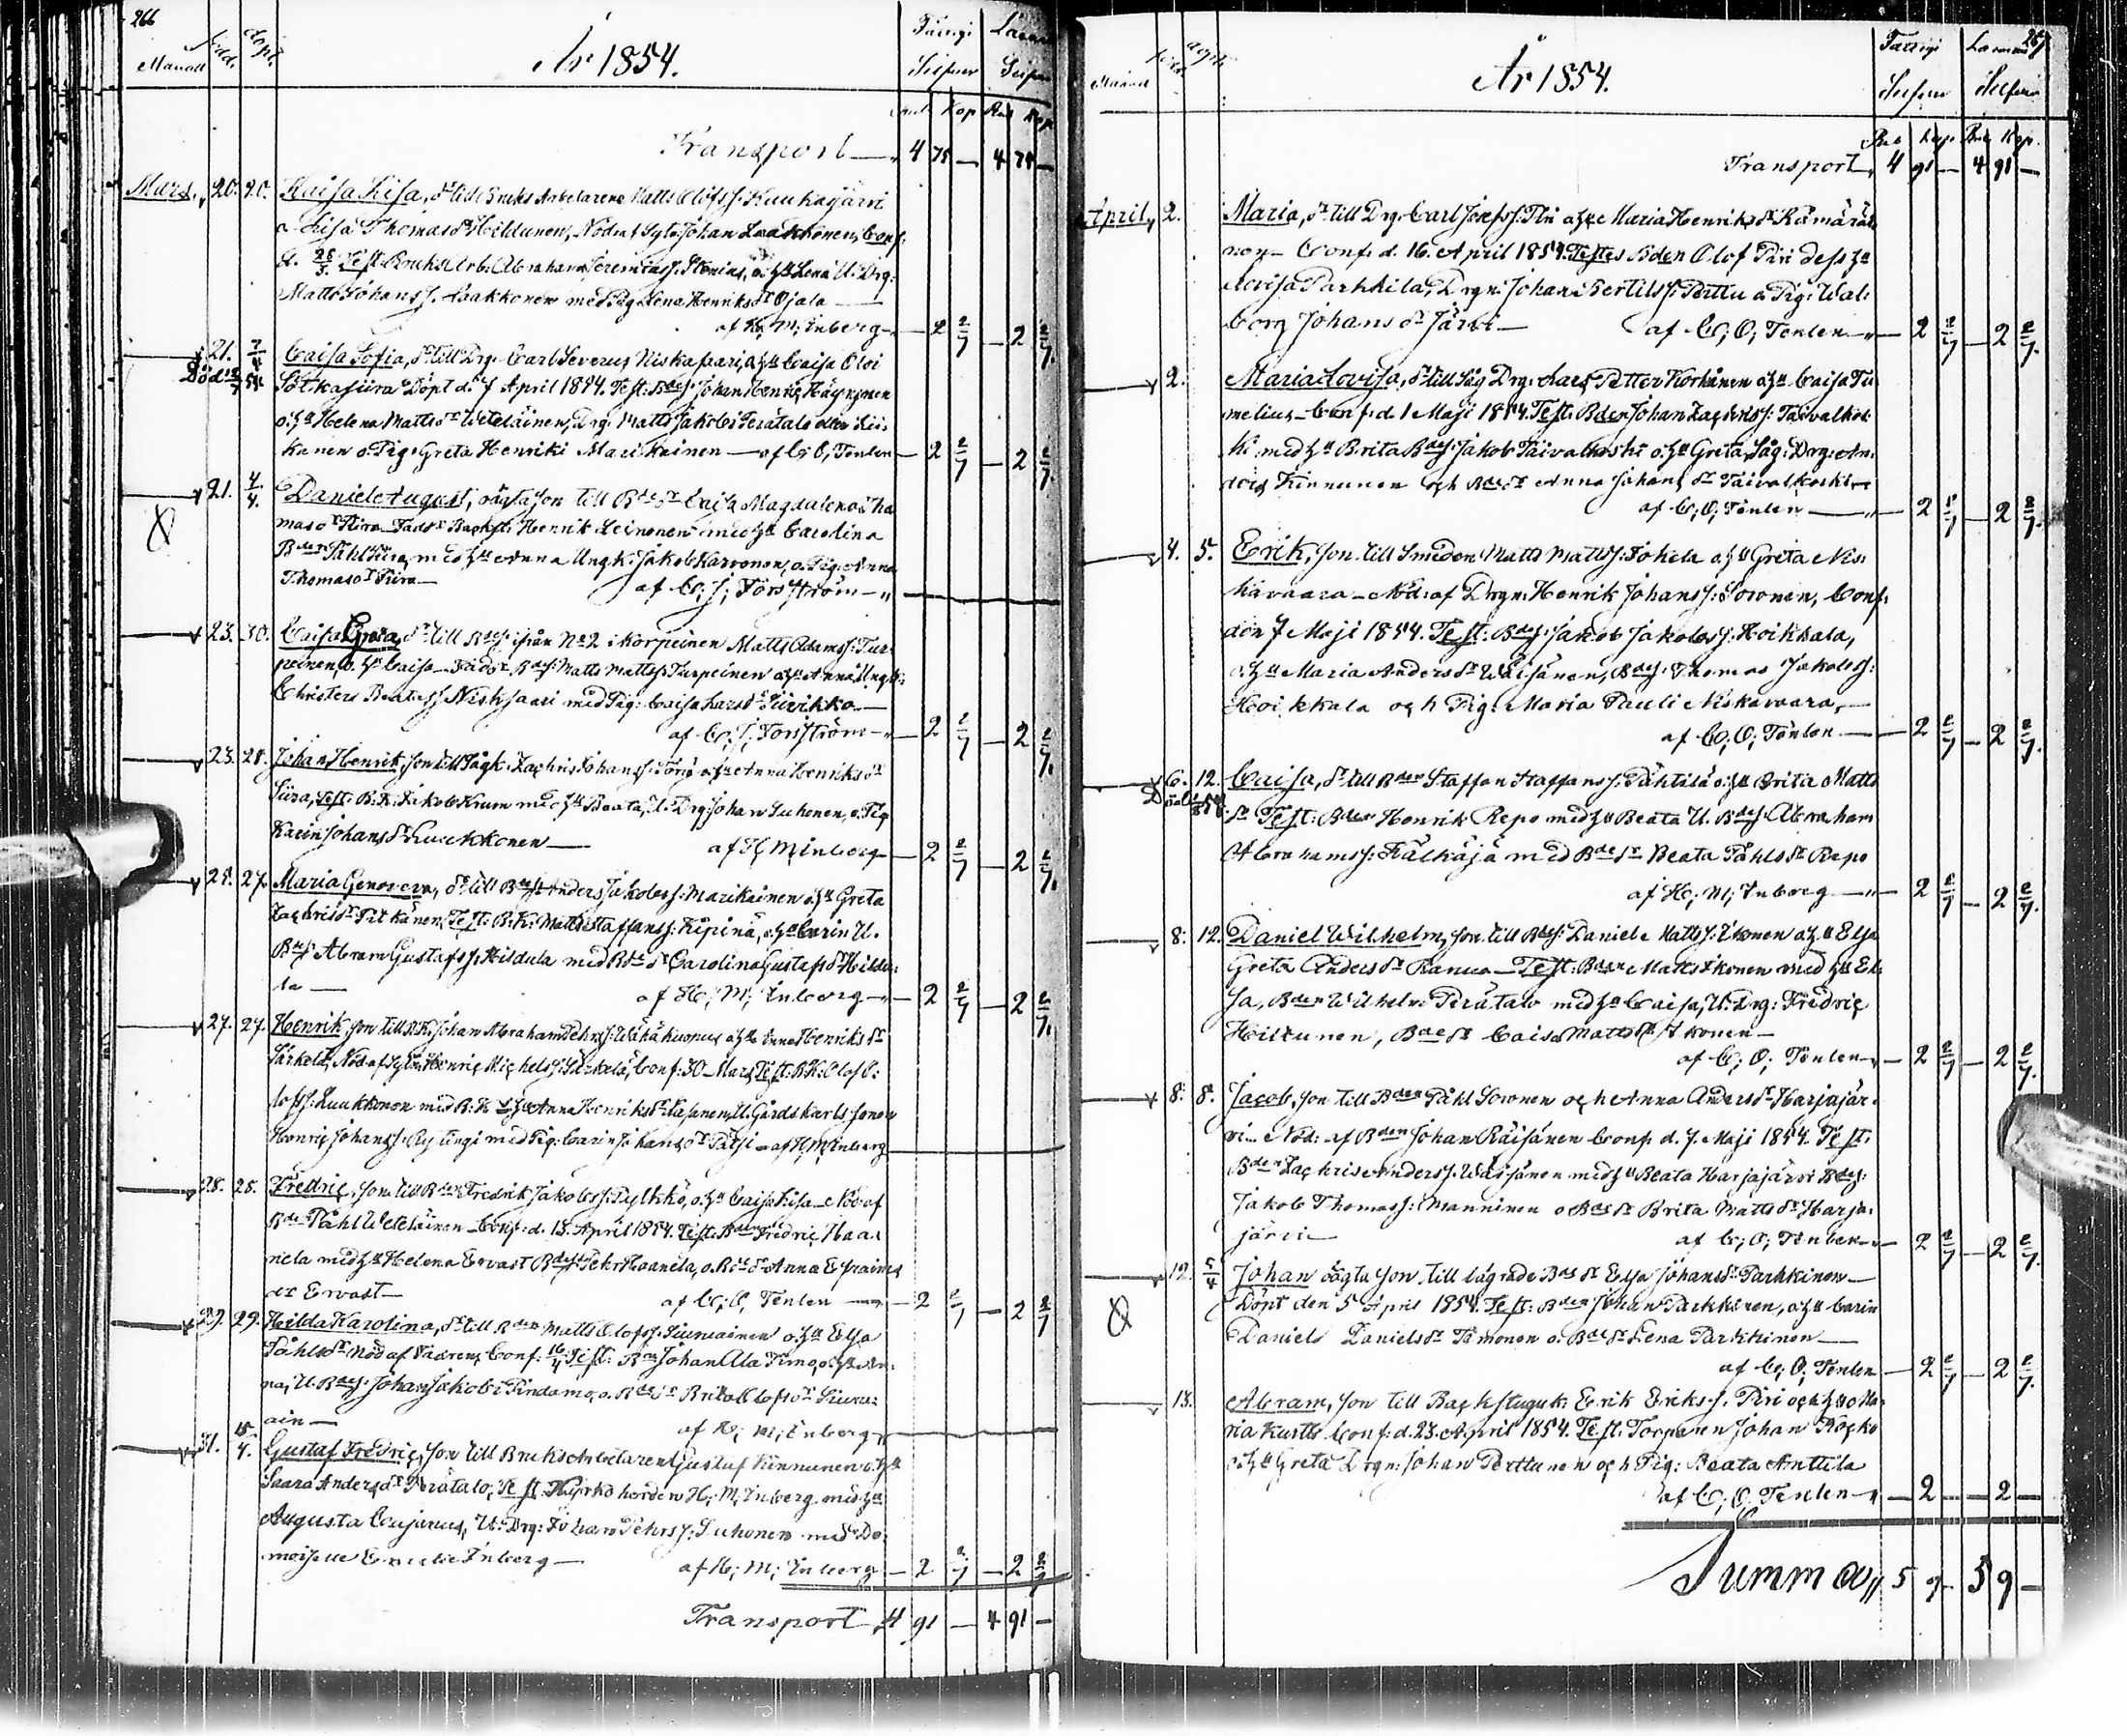 266
Månad född. döpt.
År 1854.
Fattigi Lärare
Silfver Silfver
Rub Kop Rub Kop
Transport — 4 75 — 4 75 —
Mars. 20. 20. Kaisa Lisa, dr till Bruks Arbetaren Matts Olofss: Kuukajärvi
o Lisa Thomasdr Hiltunen, Nöd: af Johan Laakkonen, Conf:
d. 28/3. Test: Bruks Arb: Abraham Jeremiass: Stenius, o: hu Lena U: Drg:
Matts Johanss: Laakkonen med Pig: Lena Henriksdr Ojala —
af H; M; Inberg — 2 2/7 — 2 2/7.
21. 7/4 Caisa Sofia, dr till Drg: Carl Severus Niskasaari, o: hu Caisa Olovi
Död Sötkasiira Döpt d: 7 April 1854. Test: Bdes: Johan Henric Häyrynen
o: hu Helena Mattsdr Weteläinen, Drg: Matts Jakobi Perätalo eller
kanen o: Pig: Greta Henriki Marikainen — af C; O; Tenlen — 2 2/7 — 2 2/7.
21. 4/4. Daniel August, oägta son till Bdedr Caisa Magdalena Tho
masdr Siira Henrik Leinonen med hu Carolina
Bden Påhl Siira, med hu Anna Ungk: Jakob Karvonen, o. Pig: Anna
Thomasdr Siira — af C; J; Forsström —
23. 30. Caisa Greta, dr till Bdes: ifrån No 2 i Korpeinen Matts Adamss: Tur-
peinen, o. hu Caisa — Bdes: Matts Mattss: Turpeinen o: hu Anna Ungk:
Christer Niskasaari med Pig: Caisa Larsdr Siivikko —
af C; J; Forsström — 2 2/7 — 2 2/7.
23. 28. Johan Henrik, son till Zachris Johanss: o: hu Anna Henriksdr
Siira, Test: B. K: Jakob Krum med hu Beata, U: Drg: Johan Suhonen, o: Pig
Karin Johansdr Luukkonen — af H; M; Inberg — 2 2/7 — 2 2/7.
25. 27. Maria Genoveva, dr till Bdes: Anders Jakobss: Marikainen o: hu Greta
Zachrisdr Pitkänen, Test: B. K: Matts Staffanss: Kipinä, o: hu Carin U.
Bdes Abram Gustafss: Heidula med Bdedr Carolina Gustafsdr Hildu-
la — af H; M; Inberg — 2 2/7 — 2 2/7.
27. 27. Henrik, son till B.K. Johan Abraham Pehrss: Wähäkuopus o: hu Anna Henriksdr
Särkelä, Nöd: af Henric Michelss: Särkelä, Conf: 30 Mars Test: B.K: Olof O-
lofss: Luukkonen med hu Anna Henriksdr U. Gårdskarls sonen
Henric Johanss: med Pig: Carin Johansdr Pätsi — af H; M; Inberg
28. 28. Fredric, son till Bden Fredrik Jakobss: Pylkkö, o: hu Caisa Lisa — Nöd: af
Bden Påhl Weteläinen — Conf: d. 13. April 1854. Test: Bden Fredric Haa-
nela med hu Helena Ervast Bdes: Pehr Haanela, o. Bdedr Anna Efraims
dr Ervast — af C; O; Tenlen — 2 2/7 — 2 2/7
29. 29. Hilda Karolina, dr till Bden Matts Olofss: Siuruainen o: hu Elsa
Påhlsdr Nöd af Fadren, Conf: 16/4 Test: Bden Johan Ala Timo, o: hu An-
na, U. Bdes: Johan Jakobi Pindamo, o. Bdedr Brita Olofsdr Siuru-
ain — af H; M; Inberg
31. 15/4. Gustaf Fredric, son till Bruks Arbetaren Gustaf Kinnunen o: hu
Saara Andersdr Perätalo, Test: Kyrkoherden H; M; Inberg med hu
Augusta Cajanus, U: Drg: Johan Pehrss: Suhonen med De-
moiselle Emelie Inberg — af H; M; Inberg — 2 2/7 — 2 2/7
Transport 4 91 — 4 91 —
267
Månad döpt.
År 1854.
Fattigi Lärare
Silfver Silfver
Rub Kop. Rub Kop.
Transport, 4 91 — 4 91 —
April, 2. Maria, dr till Drg: Carl Josefss: Piri o: hu Maria Henriksdr Kämäräi-
nen — Conf: d. 16. April 1854. Testes Bden Olof Piri dess hu
Lovisa Parkkila, Drgn: Johan Bertilss: Perttu o Pig: Wal-
borg Johansdr Järvi — af C; O; Tenlen — 2 2/7 — 2 2/7.
2. Maria Lovisa, dr till Såg Drg: Lars Petter Korhonen o: hu Caisa Tu
melius — Conf: d. 1 Maji 1854. Test: Bden Johan Zachriss: Taivalkos-
ki med hu Brita Bdes: Jakob Taivalkoski o: hu Greta, Såg: Drg: An-
ders Kinnunen och Bdedr Anna Johansdr Taivalkoski —
af C; O; Tenlen — 2 2/7 — 2 2/7.
4. 5. Erik, son till Smeden Matts Mattss: Jokela o: hu Greta Nis-
kavaara — Nöd: af Drgn: Henrik Johanss: Soronen, Conf:
den 7 Maji 1854. Test: Bdes: Jakob Jakobss: Hoikkala,
o: hu Maria Andersdr Wäisänen, Bdes: Thomas Jakobss:
Hoikkala och Pig: Maria Pauli Niskavaara, —
af C; O; Tenlen — 2 2/7 — 2 2/7.
6. 12. Caisa, dr till Bden Staffan Staffanss: Pähtilä o: hu Brita Matts
Död dr Test: Bden Henrik Repo med hu Beata U. Bdes: Abraham
Abrahamss: Kälkäjä med Bdedr Beata Påhlsdr Repo
af H; M; Inberg — 2 2/7 — 2 2/7.
8. 12. Daniel Wilhelm, son till Bdes: Daniel Mattss: Ikonen o: hu Elsa
Greta Andersdr Ranua — Test: Bden Matts Ikonen med hu El-
sa, Bden Wilhelm Perätalo med hu Caisa, U. Drg: Fredric
Hiltunen, Bdedr Caisa Mattsdr Ikonen —
af C; O; Tenlen — 2 2/7 — 2 2/7.
8. 8. Jacob, son till Bden Påhl Soronen och Anna Andersdr Harjajär-
vi — Nöd: af Bden Johan Räisänen Conf: d. 7. Maji 1854. Test:
Bden Zachris Anderss: Wäisänen med hu Beata Harjajärvi Bdes:
Jakob Thomass: Manninen o Bdedr Brita Mattsdr Harja-
järvi — af C; O; Tenlen — 2 2/7 — 2 2/7.
12. 5/4 Johan oägta son till lägrade Bdedr Elsa Johansdr Parkkinen —
Döpt den 5 April 1854. Test: Bden Johan Parkkinen, o: hu Carin
Daniels Danielsdr Timonen o. Bdedr Lena Parkkinen —
af C; O; Tenlen — 2 2/7 — 2 2/7
13. Abram, son till Backstuguk: Erik Erikss. Piri och hu Ma-
ria Kurtti Conf: d. 23. April 1854. Test: Torparen Johan
o: hu Greta Drgn: Johan Perttunen och Pig: Beata Anttila
af C; O; Tenlen — 2 — 2 —
Summa 5 9 — 5 9 —